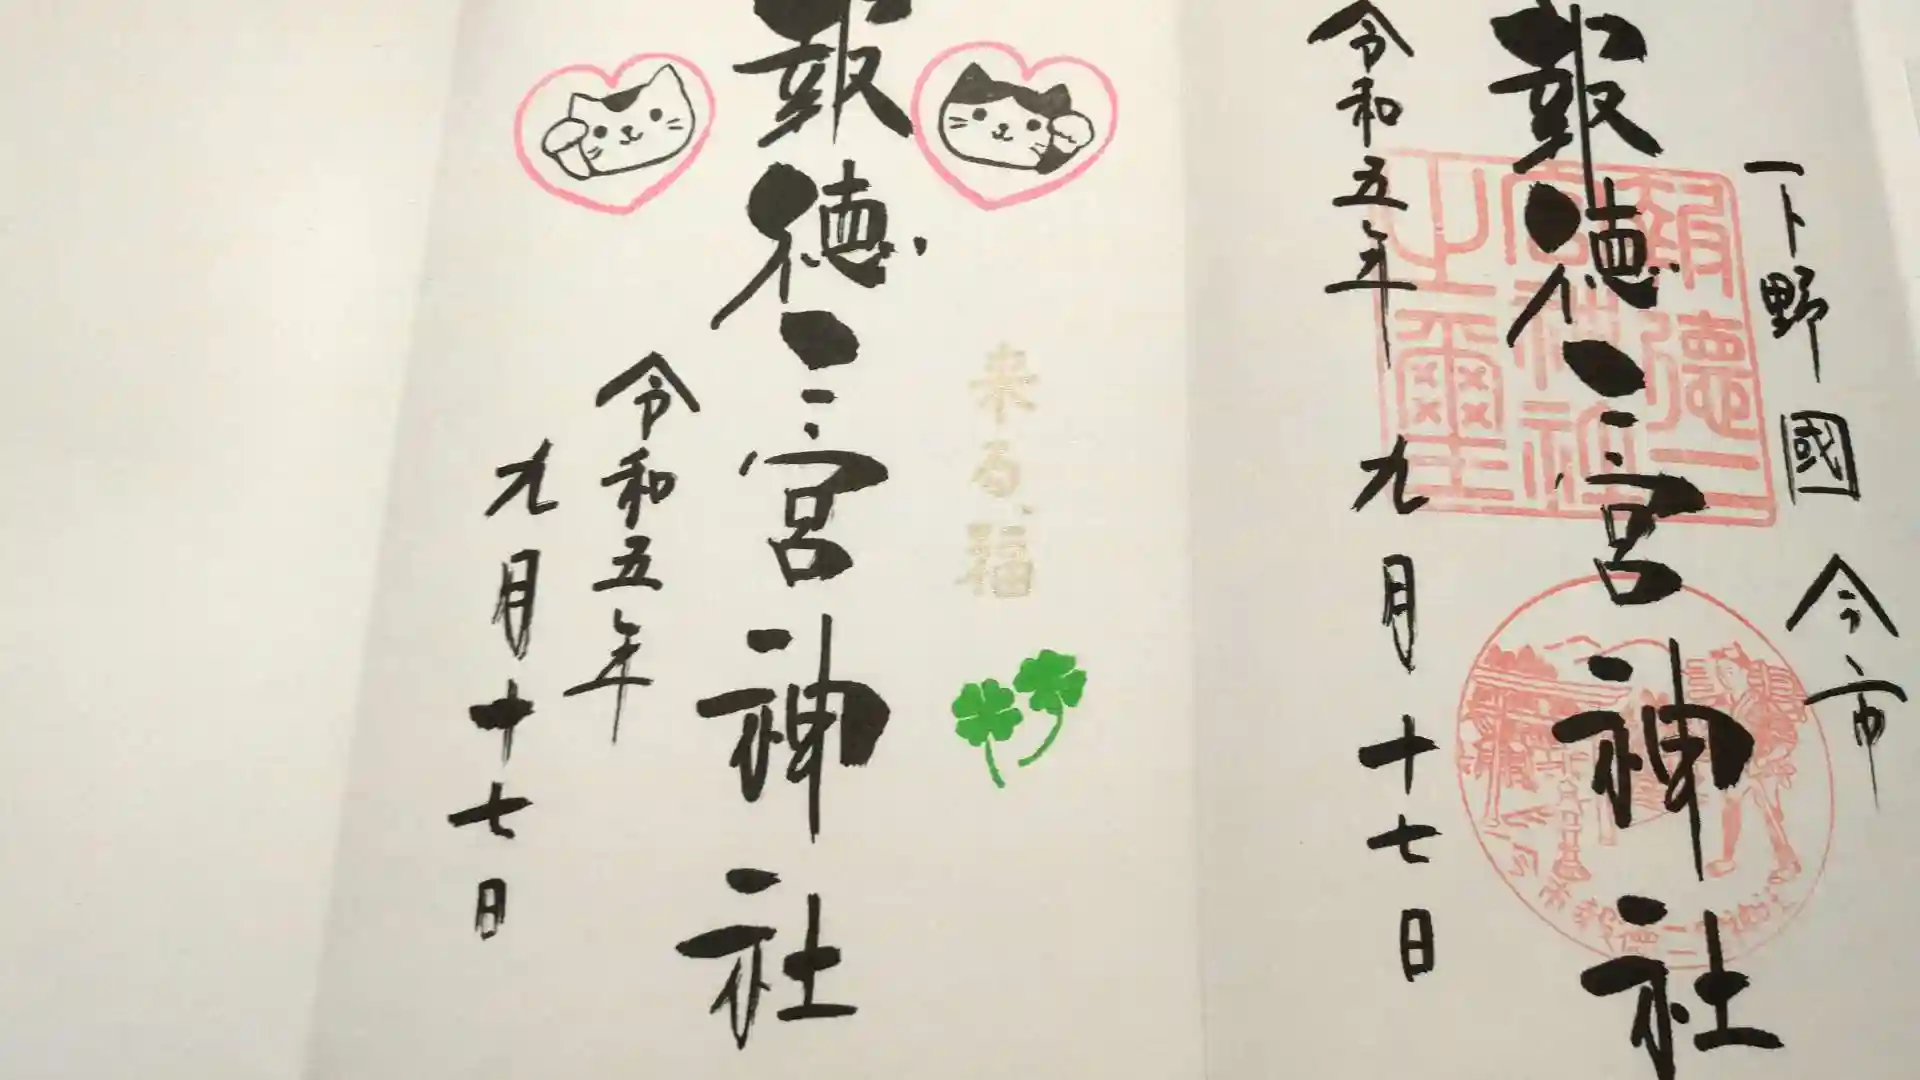 下野國 今市
報徳二宮神社
令和五年
九月十七日
報徳二宮
神社
之璽
報徳二宮神社
来る福
令和五年
九月十七日